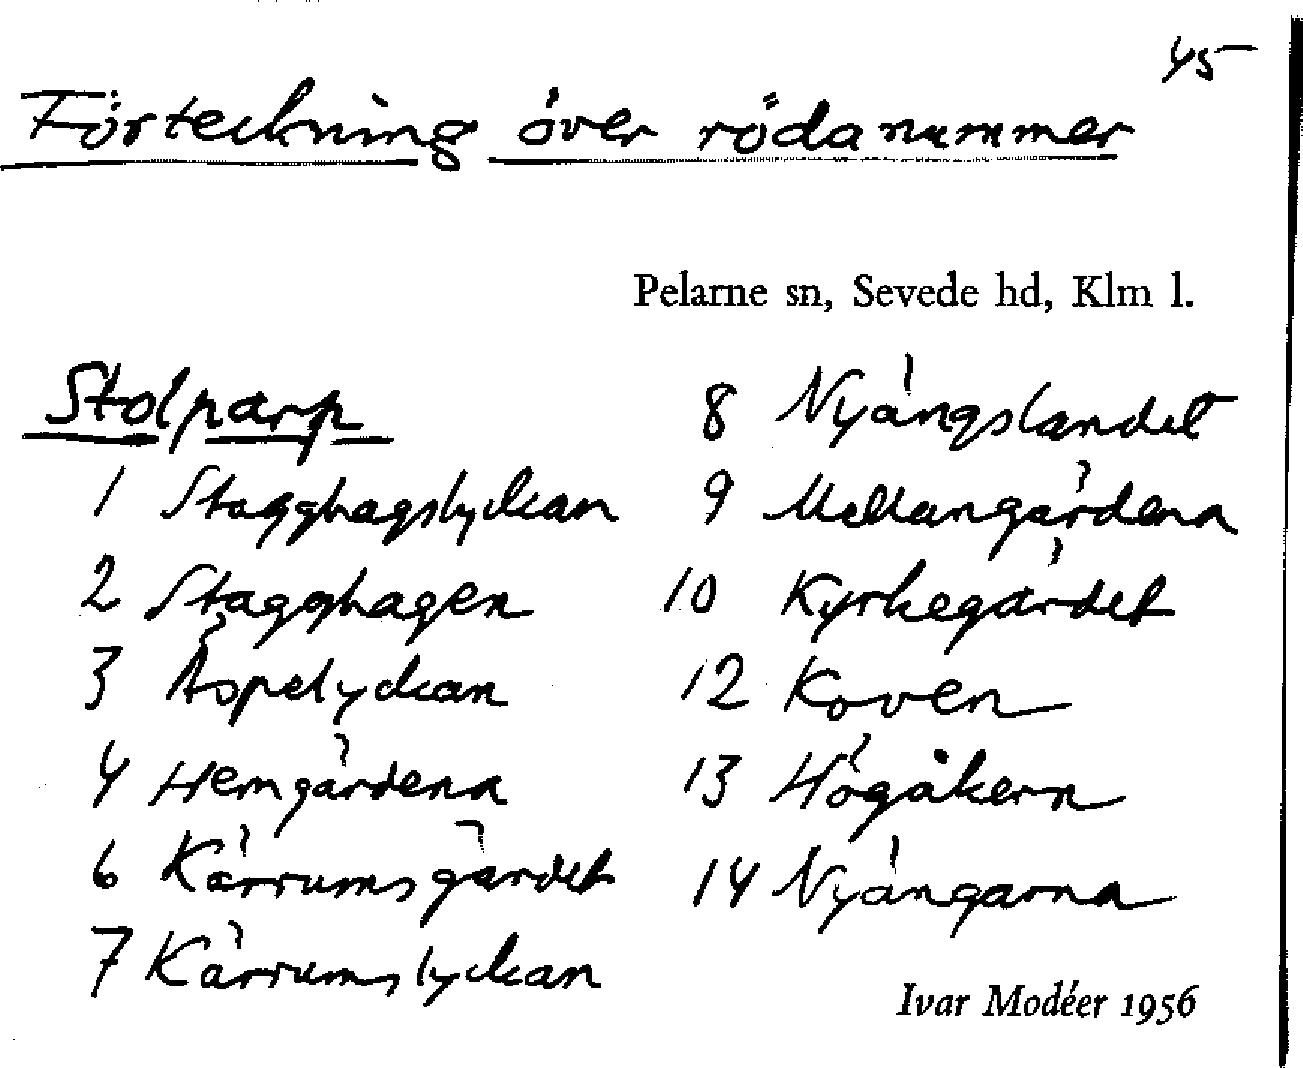 45
Förteckning över röda nummer
Pelarne sn, Sevede hd, Klm l.
Stolparp
1 Stagghagslyckan
2 Stagghagen
3 Äspelyckan
4 Hemgärdena
6 Kärrumsgärdet
7 Kärrumslyckan
8 Nyängslandet
9 Mellangärdena
10 Kyrkegärdet
12 Koven
13 Högåkern
14 Nyängarna
Ivar Modéer 1956